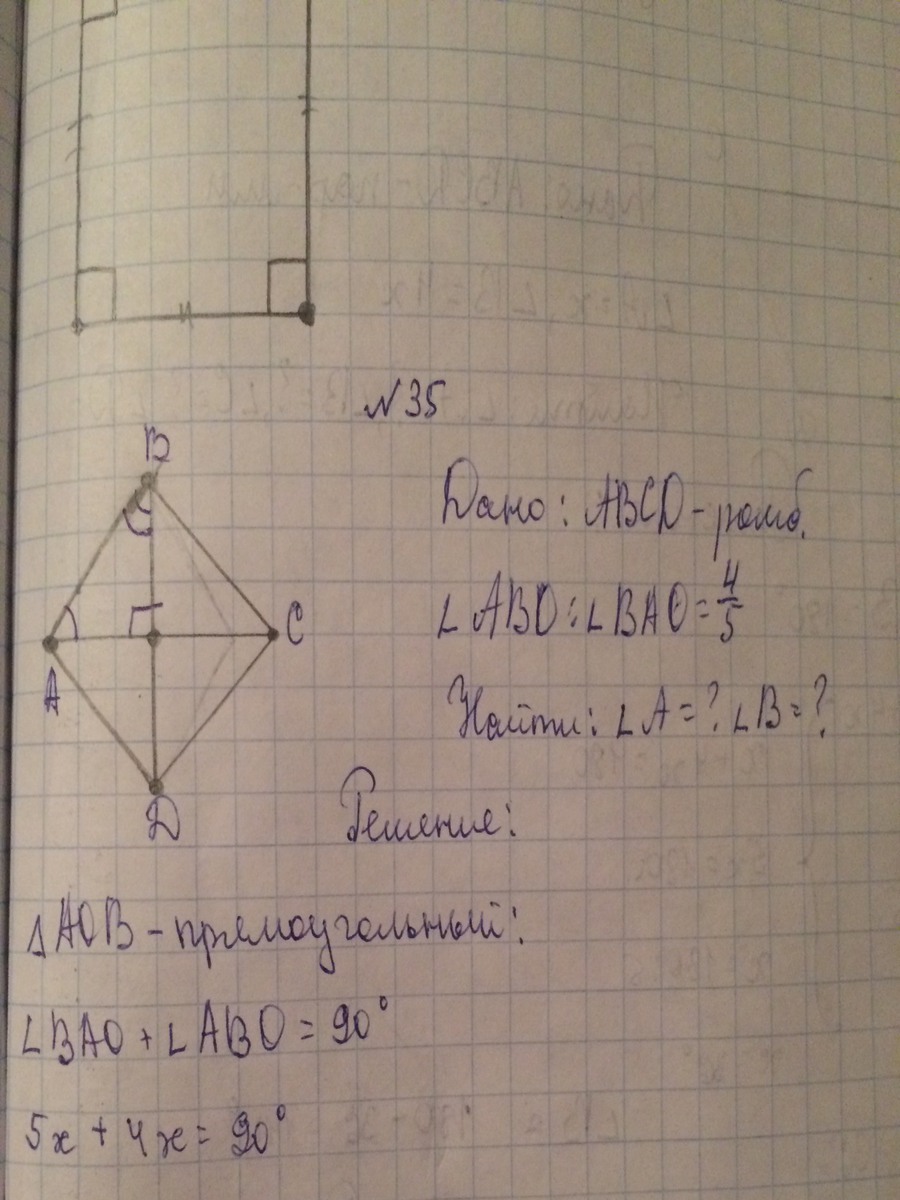 N 35
B
C
A
D
Дано: ABCD - ромб.
∠ABO : ∠BAO = 4/5
Найти: ∠A = ? ∠B = ?
Решение:
△AOB - прямоугольный:
∠BAO + ∠ABO = 90°
5x + 4x = 90°